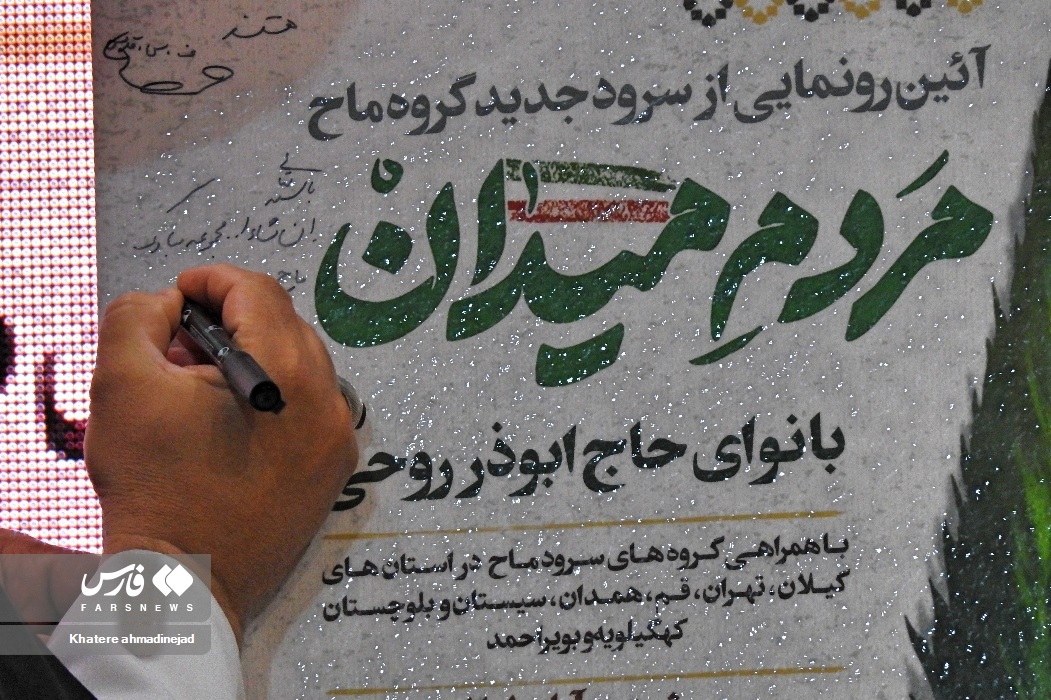 هستند
آئین رونمایی از سرود جدید گروه ماح
مَردمِ میدانْ
باستی
ان شاءا...
ماح
با نوای حاج ابوذر روحی
با همراهی گروه های سرود ماح در استان های
گیلان، تهران، قم، همدان، سیستان و بلوچستان
کهگیلویه و بویراحمد
فارس
FARSNEWS
Khatere ahmadinejad